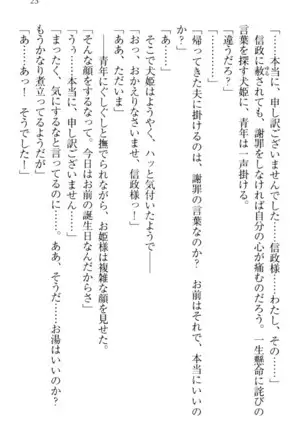 23
「……本当に、申し訳ございませんでした……信政様……わたし、その……」
信政に赦されても、謝罪をしなければ自分の心が痛むのだろう。一生懸命に詫びの
言葉を探す犬姫に、青年は一声掛ける。
「違うだろ？」
「帰ってきた夫に掛けるのは、謝罪の言葉なのか？　お前はそれで、本当にいいの
か？」
そこで犬姫はようやく、ハッと気付いたようで――
「おっ、おかえりなさいませ、信政様っ！」
「ああ、ただいま」
――青年にぐしぐしと撫でられながら、お姫様は複雑な顔を見せた。
「そんな顔をするなって。今日はお前の誕生日なんだからさ」
「うぅ……本当に、申し訳ございません……」
「まったく、気にするなと言ってるのに……。ああ、そうだ……お湯はいいのか？
もうかなり煮立ってるようだが」
「あ……あっ！　そうでした！」